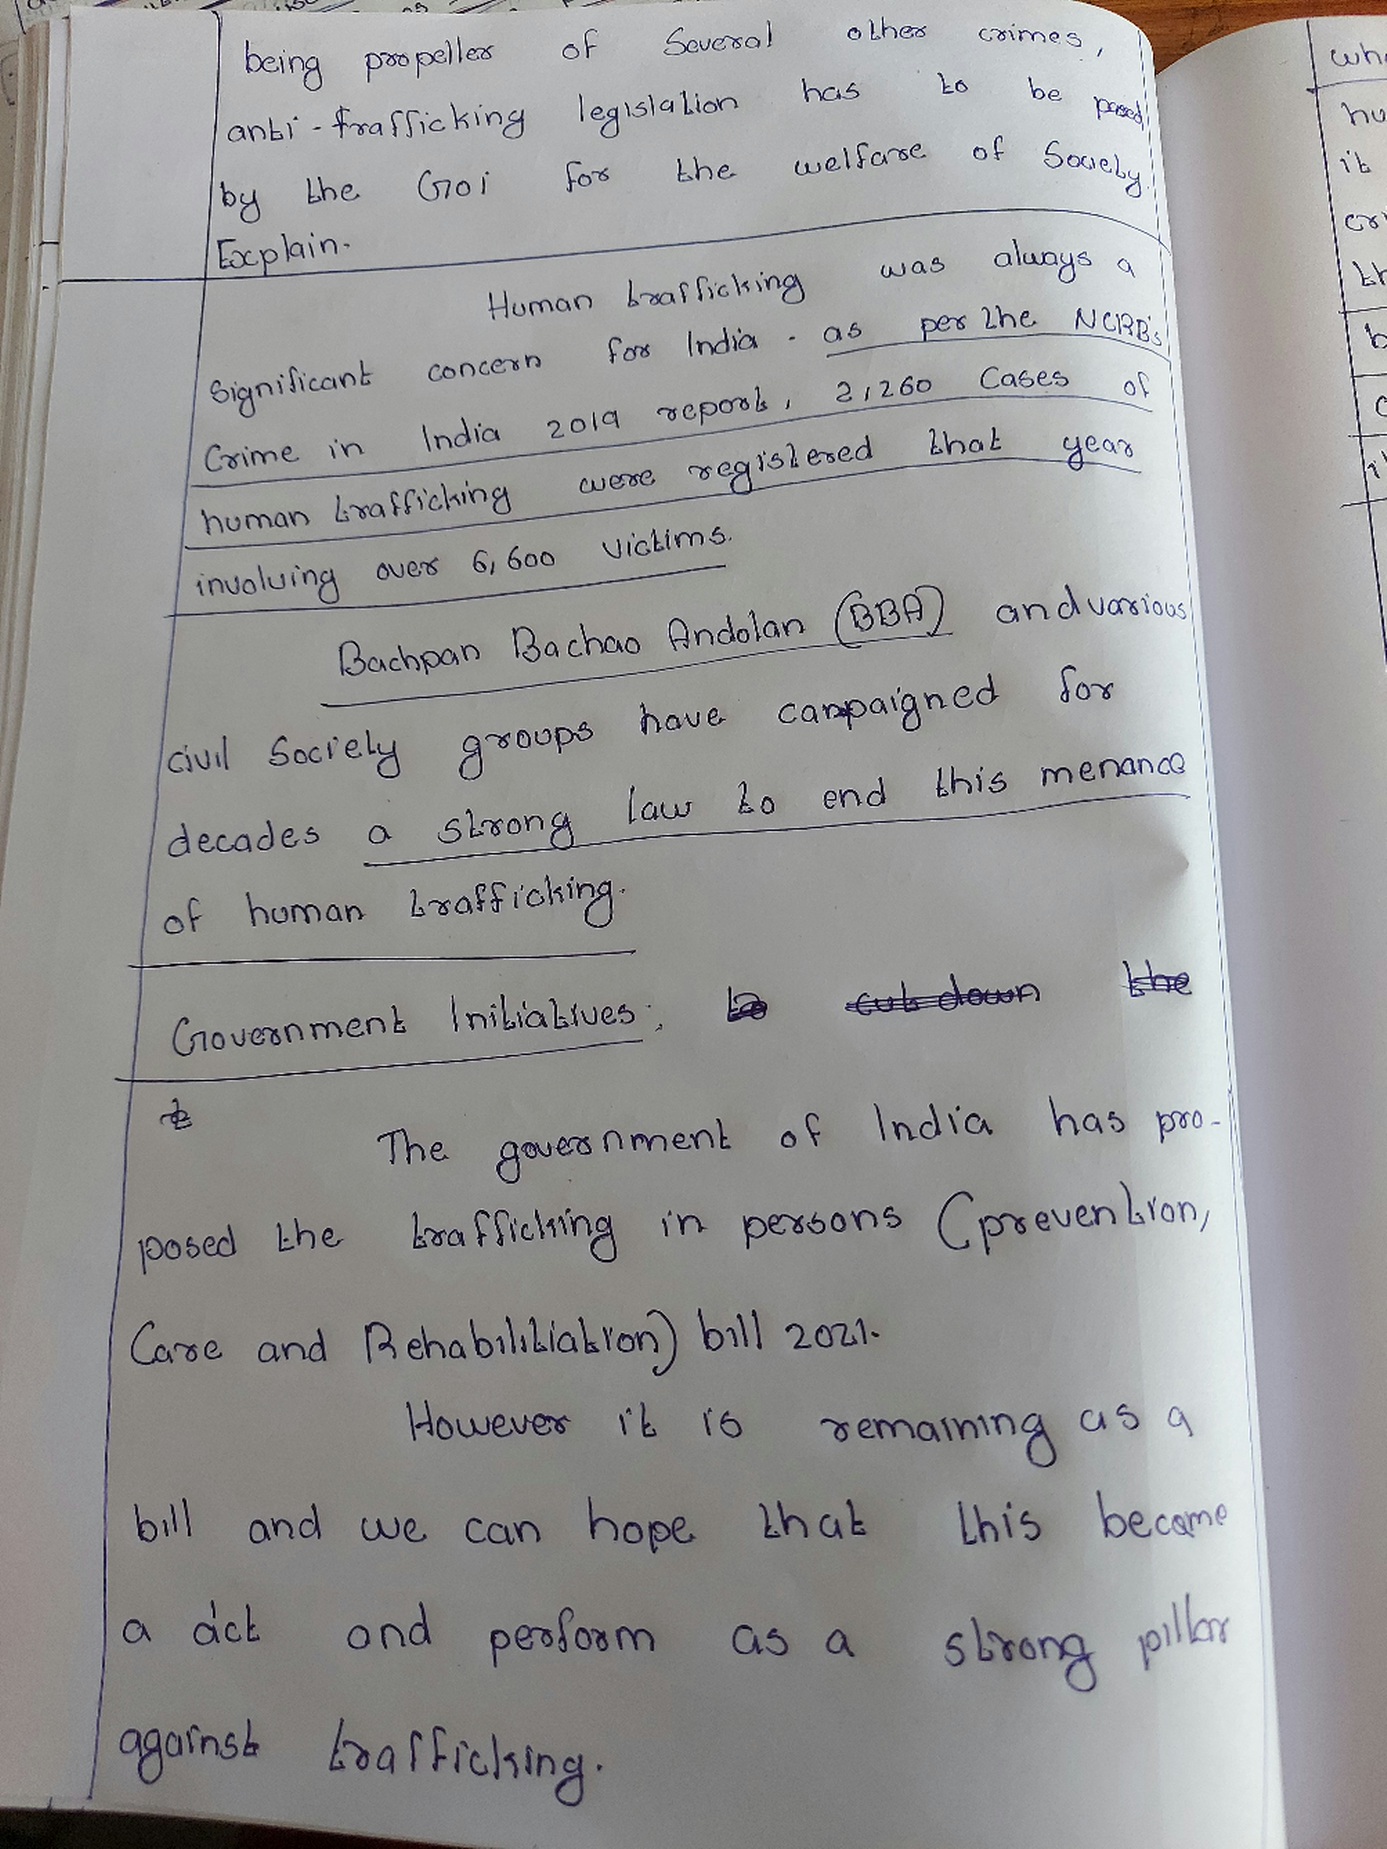 being propeller of Several other crimes,
anti-trafficking legislation has to be passed
by the GOI for the welfare of Society.
Explain.
Human trafficking was always a
Significant concern for India. as per the NCRB's
Crime in India 2019 report, 2,260 Cases of
human trafficking were registered that year
involving over 6,600 victims.
Bachpan Bachao Andolan (BBA) and various
civil Society groups have campaigned for
decades a strong law to end this menance
of human trafficking.
Government Initiatives: to cut down the
The government of India has pro-
posed the trafficking in persons (prevention,
Care and Rehabilitiation) bill 2021.
However it is remaining as a
bill and we can hope that this become
a act and perform as a strong pillar
against trafficking.
hu
it
th
b